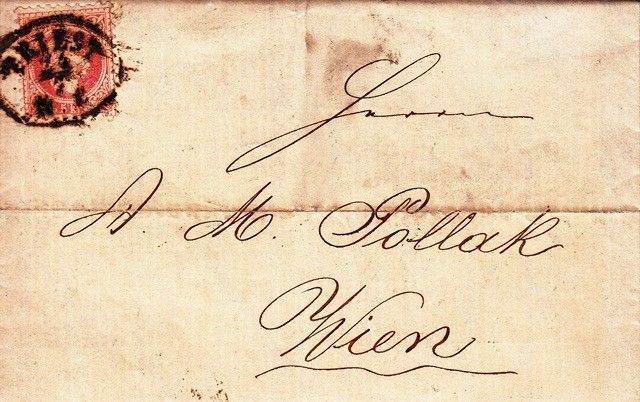 TRIEST
5
Herrn
A. M. Pollak
Wien